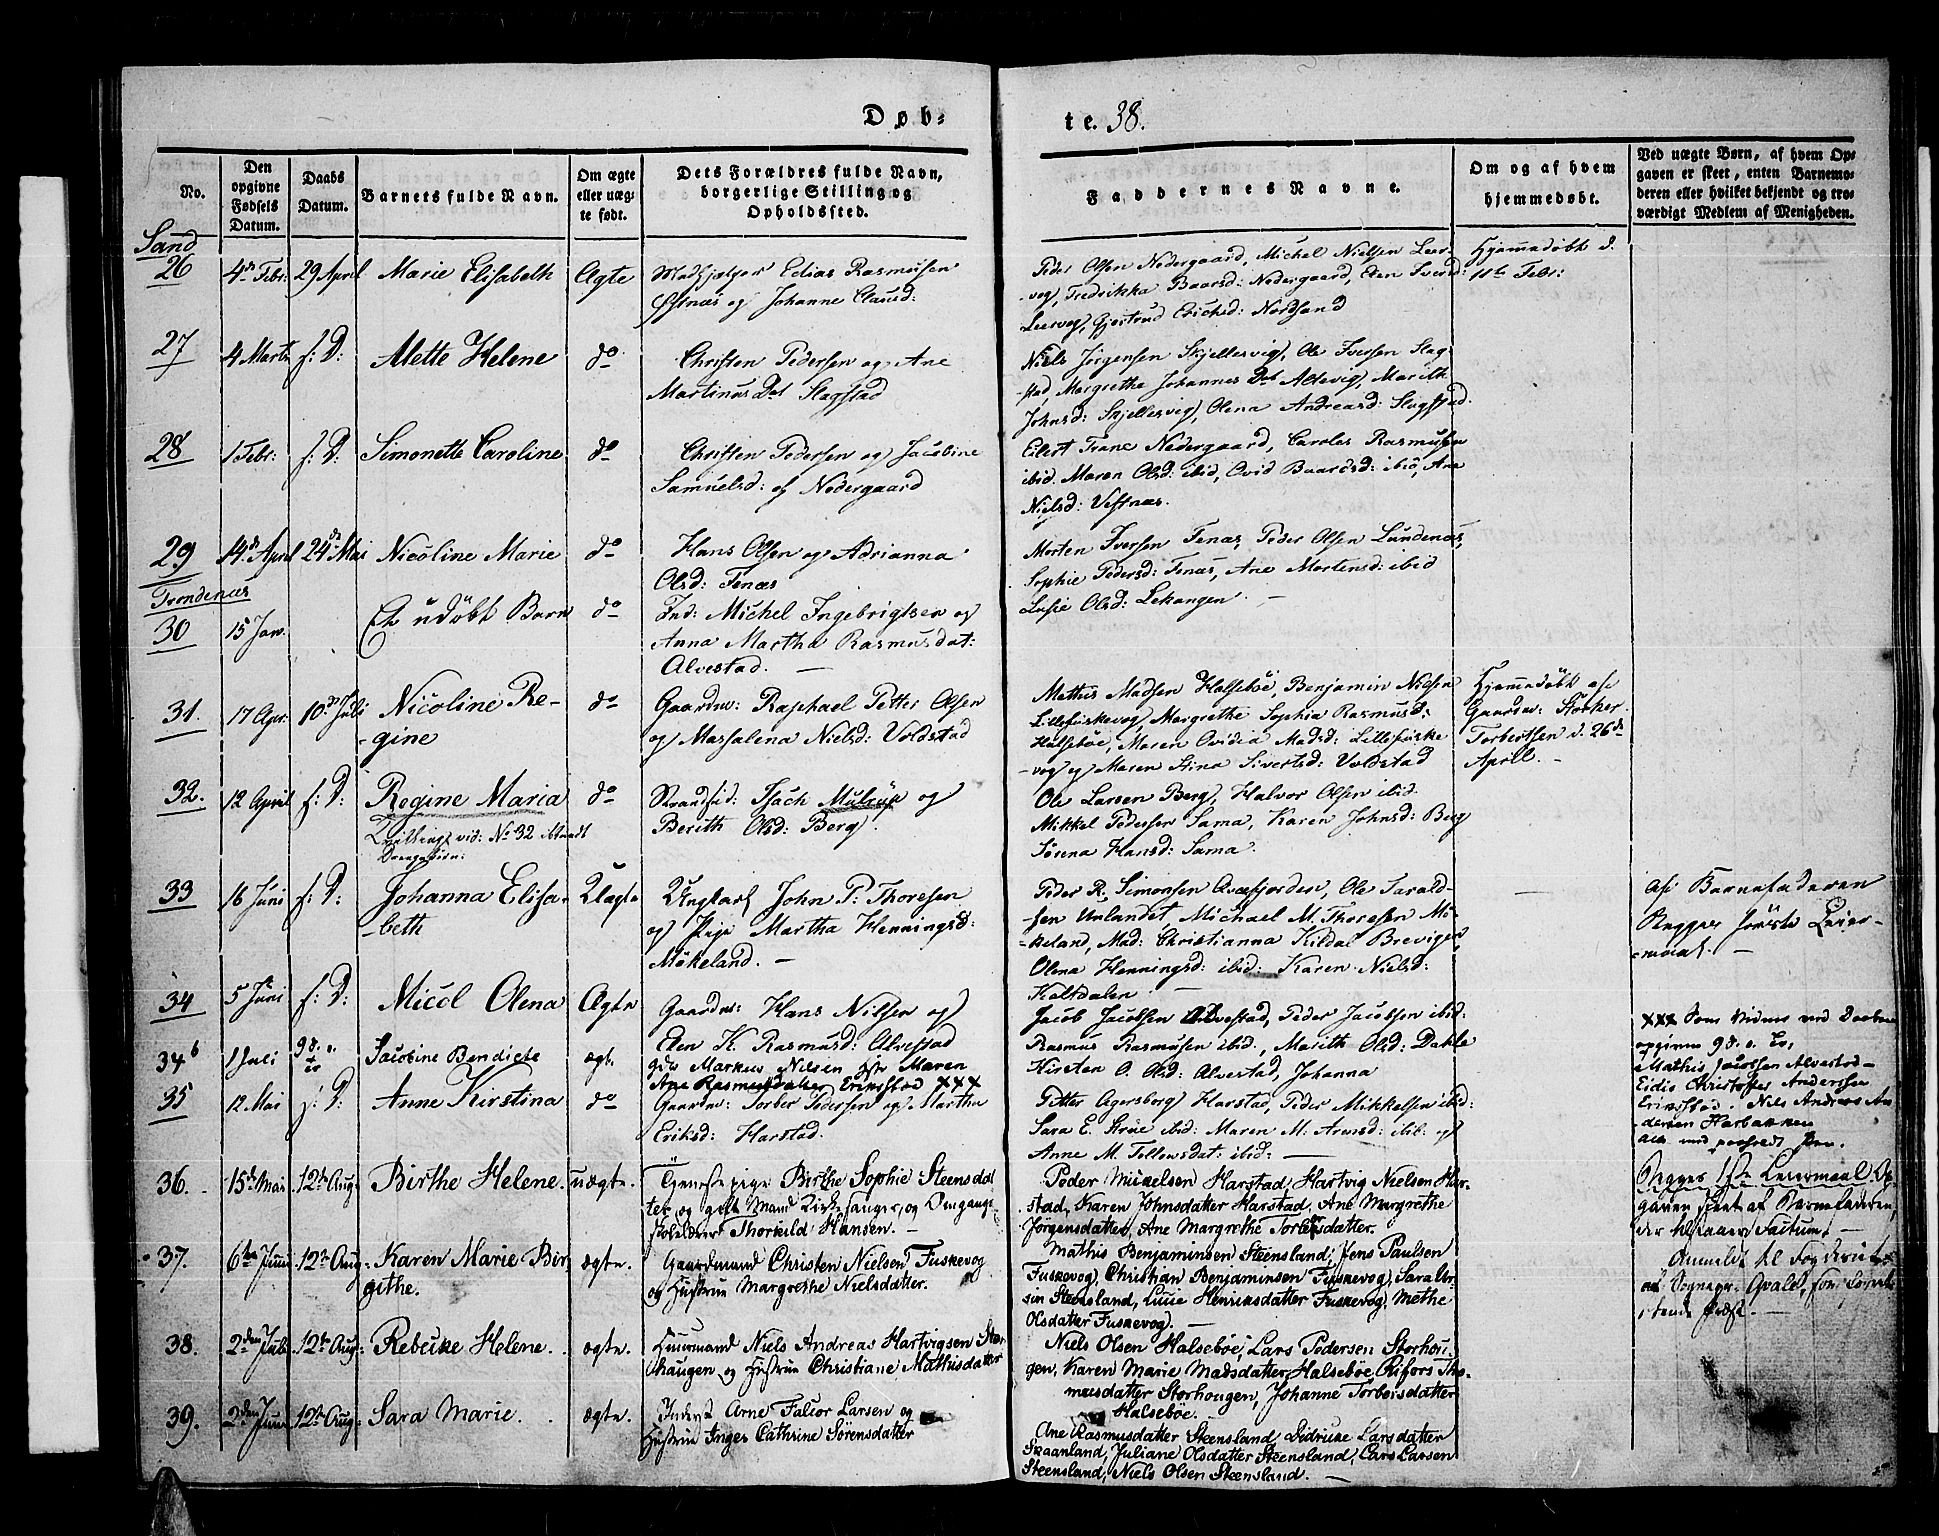 Døb-
te. 38.
No.
Den opgivne Fødsels Datum.
Daabs Datum.
Barnets fulde Navn.
Om ægte eller uæg-te født.
Dets Forældres fulde Navn, borgerlige Stilling og Opholdssted.
Faddernes Navne.
Om og af hvem hjemmedøbt.
Ved uægte Børn, af hvem Op-
gaven er skeet, enten Barnemo-
deren eller hvilket bekjendt og tro-
værdigt Medlem af Menigheden.
Sand
26 4de Febr: 29 April Marie Elisabeth Ægte
Elias Rasmusen
Østnæs og Johanne Clausd:
Peder Olsen Nedergaard, Michel Nielsen Leer-
vog, Fredrikka Baarsd: Nedergaard, Elen Iversd:
Leervog, Gjertrud Erichsd: Nordsand
Hjemmedøbt d.
11te Febr:
27 4 Marts s: D: Mette Helene do
Christen Pedersen og Ane
Martinus Dat Slagstad
Niels Jørgensen Skjellesvig, Ole Iversen Slag-
stad, Margrethe Johannes Dat Altevig, Marith
Johnsd: Skjellesvig, Olena Andreasd: Slagstad.
28 1 Febr: s: D: Simonette Caroline do
Christen Pedersen og Jacobine
Samuelsd: af Nedergaard
Eilert Trane Nedergaard, Carolus Rasmusen
ibid. Maren Olsd: ibid, Ovid Baardsd: ibid, Ane
Nielsd: Vestnæs.
29 14de April 24de Mai Nicoline Marie do
Hans Olsen og Adrianna
Olsd: Fenæs
Morten Iversen Fenæs, Peder Olsen Lundenæs,
Sophie Pedersd: Fenæs, Ane Mortensd: ibid
Lusie Olsd: Lekangen. —
Trondenæs
30 15 Jan. Et udøbt Barn do
Ind: Michel Ingebrigtsen og
Anna Martha Rasmusdat:
Alvestad. —
31. 17 Apr. 10de Juli Nicoline Re-
-gine do
Gaardm: Raphael Petter Olsen
og Massalena Nielsd: Voldstad
Mathis Madsen Halsebøe, Benjamin Nielsen
Lillefuskevog, Margrethe Sophia Rasmusd:
Halsebøe, Maren Ovidia Madsd: Lillefuske
-vog og Maren Stina Sivertsd: Voldstad
Hjemmedøbt af
Gaardm: Størker
Torbertsen d. 26de
April. —
32. 12 April s: D: Regine Maria do
Strandsid: Isach Multrup og
Berith Olsd: Berg.
vid: No 32
Ole Larsen Berg, Halvor Olsen ibid.
Mikkel Pedersen Sama, Karen Johnsd: Berg
Sørena Hansd: Sama.
33 16 Juni s: D: Johanna Elisa-
-beth Uægte
Ungkarl John P. Thoresen
og Pige Martha Henningsd:
Møkeland. —
Peder R. Simonsen Qvæfjorden, Ole Sarald-
sen Unlandet, Michael M. Thoresen Mø-
-keland, Mad: Christianna Kildal Brevigen,
Olena Henningsd: ibid: Karen Nielsd:
Kaltdalen. —
af Barnefaderen
Begges første Leier-
-maal. —
34 5 Juni s: D: Micol Olena Ægte
Gaardm: Hans Nilsen og
Elen K. Rasmusd: Alvestad
Jacob Jacobsen Alvestad, Peder Jacobsen ibid:
Rasmus Rasmusen ibid, Marith Olsd: Dahle
Kirsten O. Olsd: Alvestad, Johanna
34b 1 Juli Jacobine Bendicte ægt.
Markus Nilsen Maren
Ane Rasmusdatter Erikstad XXX
XXX Som Vidner ved Daaben
opgives
Mathis Jacobsen Alvestad -
Eidis Christoffer Andersen
Erikstad. Niels Andreas An-
dersen Harbakken
35 12 Mai s: D: Anne Kirstina do
Gaardm: Torber Pedersen og Martha
Eriksd: Harstad.
Petter Agersborg Harstad, Peder Mikkelsen ibid:
Sara E. Strøe ibid: Maren M. Arnsd: ibid: og
Anne M. Tollevsdat: ibid: —
36. 15de Mai 12te Aug: Birthe Helene. uægte.
Tjenestepige Birthe Sophie Steensdat
ter og gift Mand Kirkesanger og Omgangs-
skoleholder Thorkild Hansen. —
Peder Mickelsen Harstad, Hartvig Nielsen Har-
stad, Karen Johnsdatter Harstad, Ane Margrethe
Jørgensdatter, Ane Margrethe Torbersdatter.
Begges 1ste Leiermaal. Op-
gaven skeet af Barnefaderen,
37. 6te Juni 12te Aug: Karen Marie Bir-
githe. ægte.
Gaardmand Christen Nielsen Fuskevog
og Hustrue Margrethe Nielsdatter.
Mathis Benjaminsen Steensland, Jens Paulsen
Fuskevog, Christian Benjaminsen Fuskevog, Sara Ur-
sin Steensland, Lucie Henriksdatter Fuskevog, Mette
Olsdatter Fuskevog. —
38. 2den Juli 12te Aug: Rebecke Helene. ægte.
Huusmand Niels Andreas Hartvigsen Stor
haugen og Hustrue Christiane Mathisdatter
Niels Olsen Halsebøe, Lars Pedersen Storhou-
gen, Karen Marie Madsdatter Halsebøe, Rifors Tho-
masdatter Storhougen, Johanne Torbersdatter
Halsebøe.
39. 2den Juni 12te Aug: Sara Marie. ægte.
Inderst Arne Falcor Larsen og
Hustrue Inger Cathrine Sørensdatter
Ane Rasmusdatter Steensland, Didrikke Larsdatter
Skaanland, Juliane Olsdatter Steensland, Lars Larsen
Steensland, Niels Olsen Steensland. —